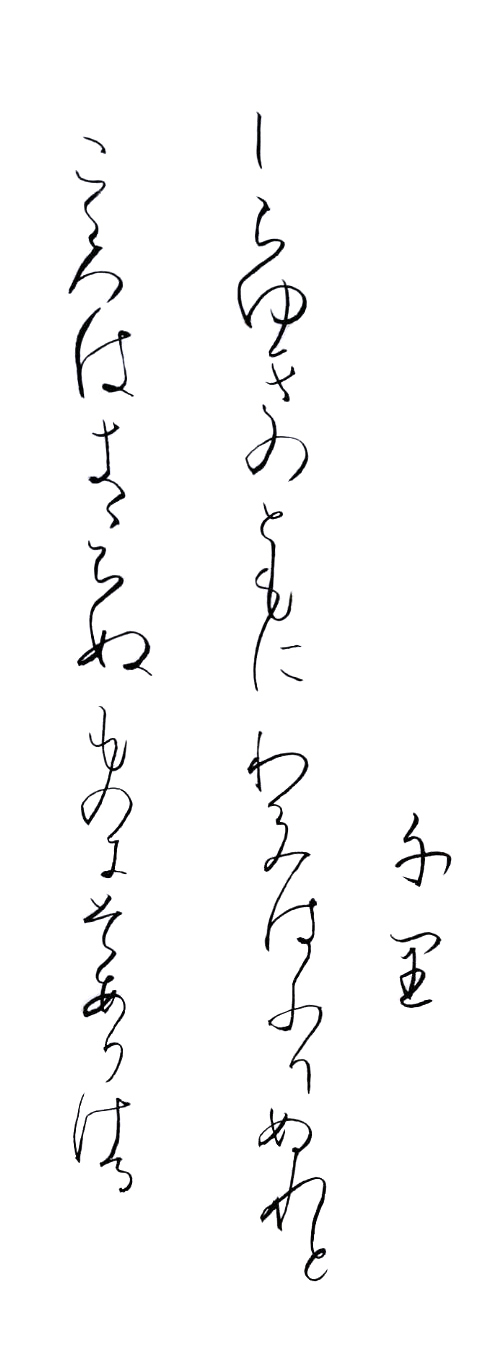 千里
しらゆきのともにわかみはふりぬれと
こゝろはきえぬものにそありける